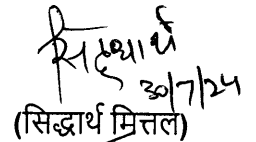 सिद्धार्थ
30/7/24
(सिद्धार्थ मित्तल)